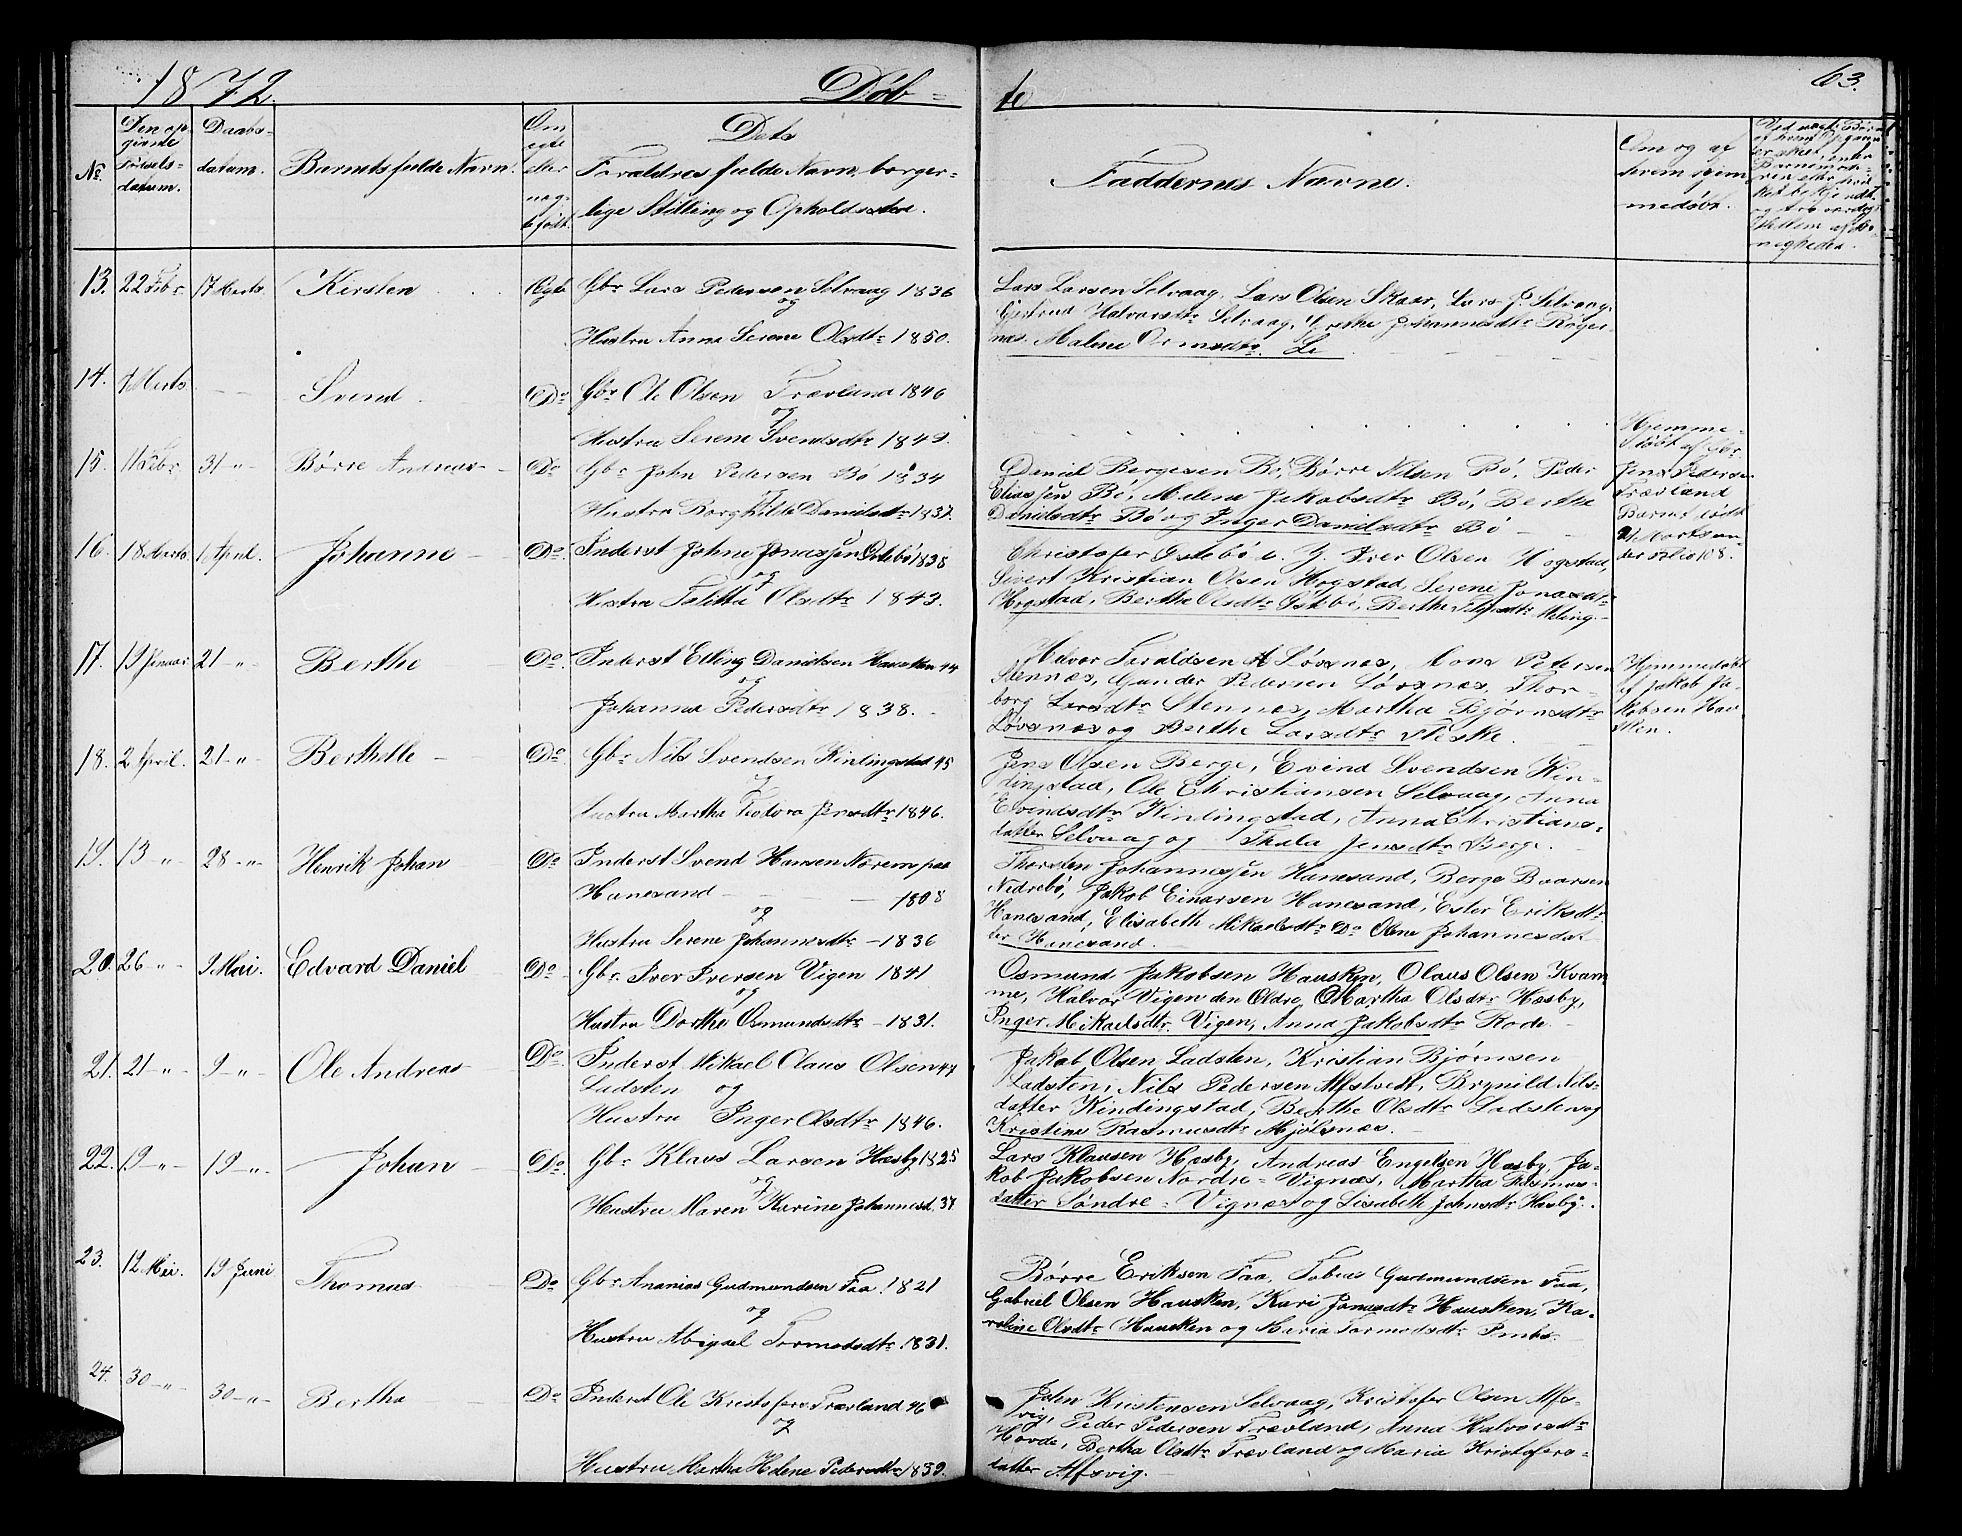 1872. Døb- te 63.
No. Den opgivne Fødsels-datum. Daabs-datum. Barnets fulde Navn. Om ægte eller uægte født. Dets Forældres fulde Navn, borger-lige Stilling og Opholdssted. Faddernes Navne. Om og af hvem hjemmedøbt.
13. 22 Febr. 17 Marts. Kirsten Ægte Gbr Lars Pedersen Selvaag 1836
og
Hustru Anna Serene Olsdtr 1850.
Lars Larsen Selvaag, Lars Olsen Skaar, Lars J. Selvaag,
Gjertrud Halvorsdtr Selvaag, Johannesdtr
Malene Ormsdtr. Le
14. Marts Svend Do Gbr Ole Olsen Travland 1846
og
Hustru Serene Svendsdtr 1842.
15. 11 Febr. 31 -"- Børre Andreas Do Gbr John Pedersen Bø 1834
og
Hustru Borghilde Danielsdtr 1837.
Daniel Børgesen Bø, Børre Nilsen Bø, Peder
Eliassen Bø, Malene Jakobsdtr Bø, Berthe
Danielsdtr Bø og Inger Danielsdtr Bø
Hjemme-
døbt af Gbr
Jens Pedersen
Travland
16. 18 Marts. 1 April. Johanne Do Inderst John Jonassen Østebø 1838
og
Hustru Talitta Olsdtr 1843.
Christofer Østebø d. y. Iver Olsen Hogstad,
Sivert Kristian Olsen Hogstad, Serene Jonasdtr
Hogstad, Berthe Olsdtr Østebø, Berthe Meling.
17. 19 Januar 21 -"- Berthe Do Inderst Elling Danielsen Hausken 44
og
Johanna Pedersdtr 1838.
Halvor Taraldsen Løvsnæs, Mons Pedersen
Stennæs, Gunder Pedersen Løvsnæs, Thor-
borg Larsdtr Stennæs, Martha Bjørnsdtr
Løvsnæs og Berthe Larsdtr Fleske.
Hjemmedøbt
af Jakob Ja-
kobsen Hau-
sken.
18. 2 April. 21 -"- Berthille Do Gbr Nils Svendsen Kindingstad 45
og
Hustru Martha Teodora Jensdtr 1846.
Jens Olsen Berge, Evind Svendsen Kin-
dingstad, Ole Christiansen Selvaag, Anna
Evindsdtr Kindingstad, Anna Christians-
datter Selvaag og Thala Jensdtr Berge.
19. 13 -"- 28 -"- Henrik Johan Do Inderst Svend Hansen Norem paa
Hanesand 1808
og
Hustru Serene Johannesdtr 1836
Thorsten Johannessen Hanesand, Berge Baarsen
Nedrebø, Jakob Einarsen Hanesand, Ester Eriksdtr
Hanesand, Elisabeth Mikaelsdtr Do Olene Johannesdat-
ter Hanesand.
20. 26 -"- 9 Mai. Edvard Daniel Do Gbr Iver Iversen Vigen 1841
og
Hustru Dorthe Osmundsdtr 1831.
Osmund Jakobsen Hausken, Olaus Olsen Kvam-
me, Halvor Vigen den Eldre, Martha Olsdtr Hæsby,
Inger Mikaelsdtr Vigen, Anna Jakobsdtr Rode.
21. 21 -"- 9 -"- Ole Andreas Do Inderst Mikael Olaus Olsen 47
Ladsten og
Hustru Inger Olsdtr 1846.
Jakob Olsen Ladsten, Kristian Bjørnsen
Ladsten, Nils Pedersen Alfstvedt, Brynild Nils-
datter Kindingstad, Berthe Olsdtr Ladsten og
Kristine Rasmusdtr Mjølsnæs.
22. 19 -"- 19 -"- Johan Do Gbr Klaus Larsen Hæsby 1825
og
Hustru Maren Karine Johannesd. 37
Lars Klausen Hæsby, Andreas Engelsen Hæsby, Ja-
kob Jakobsen Nordre-Vignæs, Martha Rasmus-
datter Søndre-Vignæs og Lisabeth Johnsdtr Hæsby.
23. 12 Mai. 19 Juni Thomas Do Gbr Ananias Gudmundsen Faa 1821
og
Hustru Abigael Tormodsdtr 1831.
Børre Eriksen Faa, Tobias Gudmundsen Faa,
Gabriel Olsen Hausken, Kari Jonasdtr Hausken, Ka-
roline Olsdtr Hausken og Maria Tormodsdtr
24. 30 -"- 30 -"- Bertha Do Inderst Ole Kristofers Travland 46
og
Hustru Martha Helene Pedersdtr 1839.
John Kristensen Selvaag, Kristofer Olsen Alfs-
vig, Peder Pedersen Travland, Anna Halvorsdtr
Hovde, Bertha Olsdtr Travland og Maria Kristofers-
datter Alfsvig.